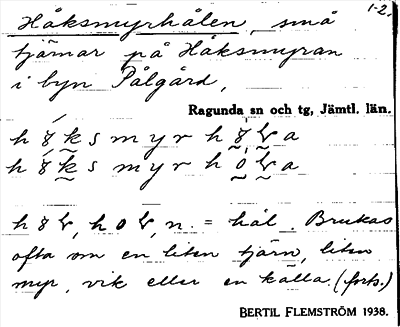 1-2.
Håksmyrhålen, små
tjärnar på Håksmyran
i byn Pålgård,
Ragunda sn och tg, Jämtl. län.
= hål. Brukas
ofta om en liten tjärn, liten
myr, vik eller en källa. (forts.)
BERTIL FLEMSTRÖM 1938.